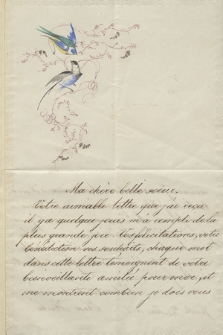 Ma chère belle soeur.
Votre aimable lettre que j'ai reçu
il y a quelque jours m'a comblé de la
plus grande joie. Les félicitations, votre
bénédiction vos souhaits, chaque mot
dans cette lettre témoignent de votre
bienveillante amitié pour moi, et
me montrent combien je dois vous